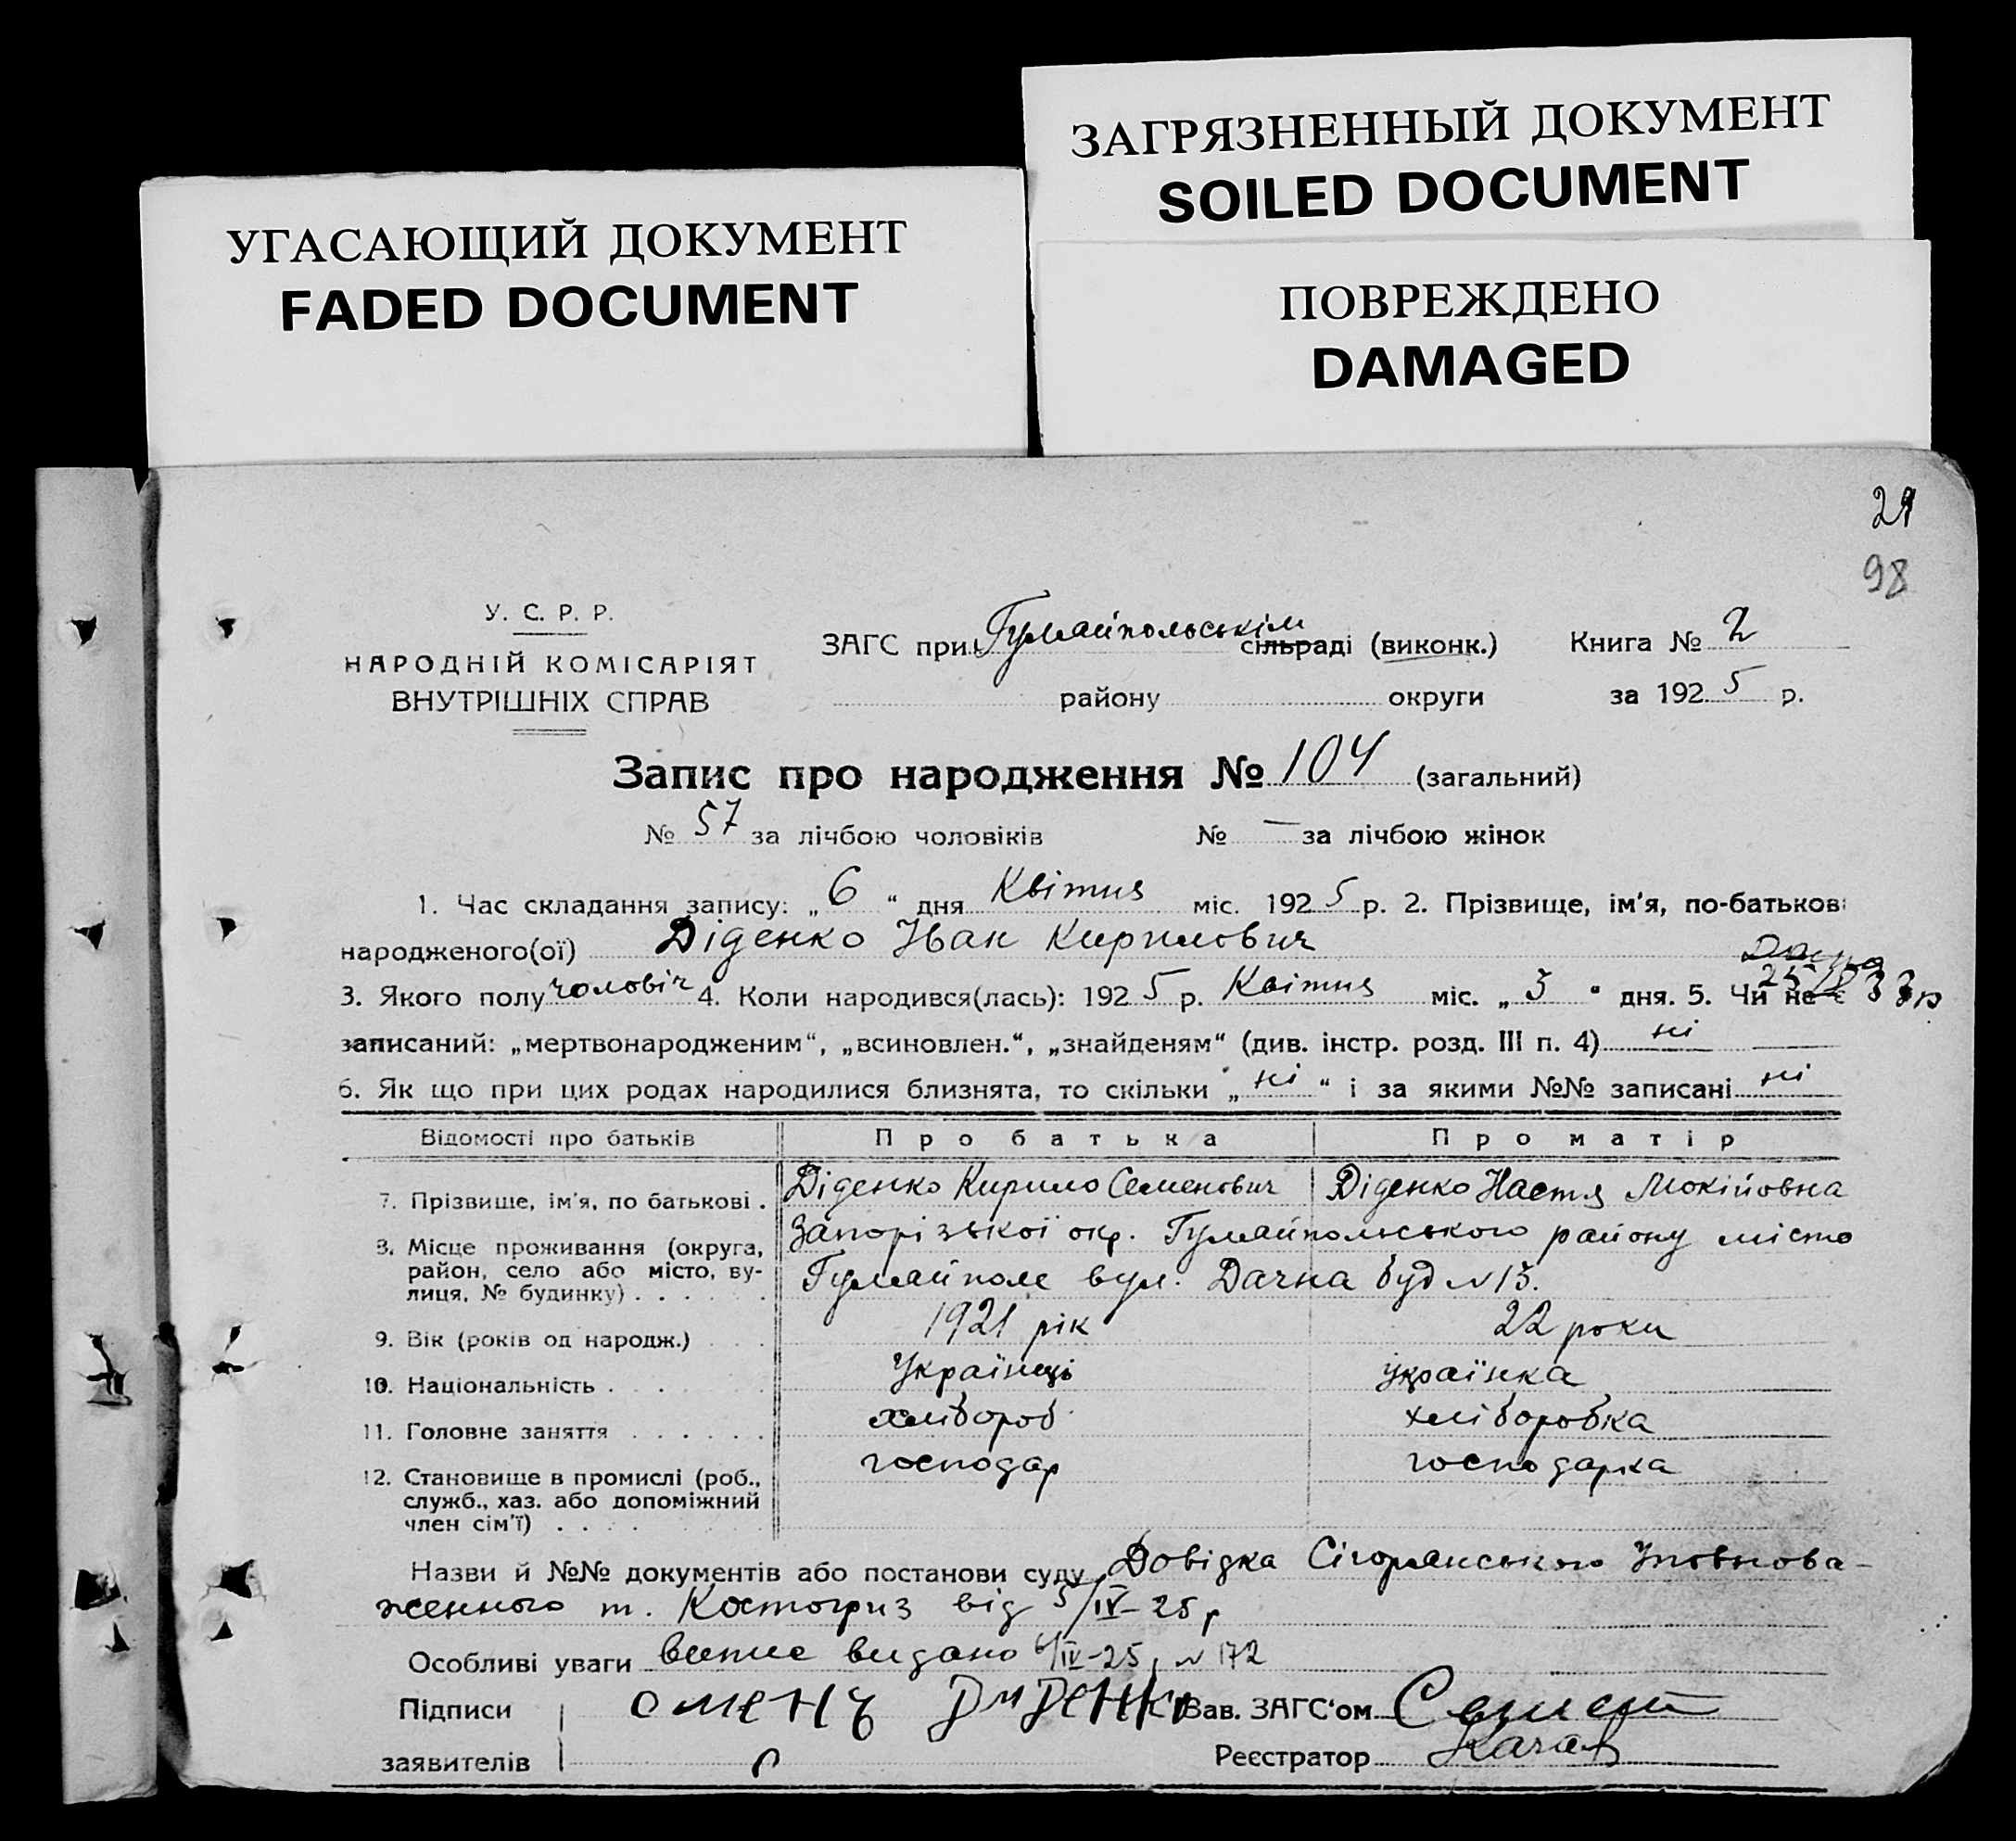 ЗАГРЯЗНЕННЫЙ ДОКУМЕНТ
SOILED DOCUMENT
УГАСАЮЩИЙ ДОКУМЕНТ
FADED DOCUMENT
ПОВРЕЖДЕНО
DAMAGED
98
У. С. Р. Р.
НАРОДНІЙ КОМІСАРІЯТ
ВНУТРІШНІХ СПРАВ
ЗАГС при Гуляйпольськім сільраді (виконк.)
району округи
Книга № 2
за 1925 р.
Запис про народження № 104 (загальний)
№ 57 за лічбою чоловіків № — за лічбою жінок
1. Час складання запису: „6“ дня Квітня міс. 1925 р. 2. Прізвище, ім'я, по-батькові
народженого(ої) Діденко Іван Кирилович
3. Якого полу чоловіч 4. Коли народився(лась): 1925 р. Квітня міс. „3“ дня. 5. Чи не є
записаний: „мертвонародженим“, „всиновлен.“, „знайденям“ (див. інстр. розд. III п. 4) ні
6. Як що при цих родах народилися близнята, то скільки „ні“ і за якими №№ записані ні
Відомості про батьків Про батька Про матір
7. Прізвище, ім'я, по батькові . Діденко Кирило Семенович Діденко Настя Мокійовна
8. Місце проживання (округа, район, село або місто, вулиця, № будинку) . . . . . . Запорізької окр. Гуляйпольського району місто
Гуляйполе вул. Дачна буд N 13.
9. Вік (років од народж.) . . . 1921 рік 22 роки
10. Національність . . . . . . Українці українка
11. Головне заняття . . . . . . хлібороб хліборобка
12. Становище в промислі (роб., служб., хаз. або допоміжний член сім'ї) . . . . господар господарка
Назви й №№ документів або постанови суду Довідка Уповнова-
женного т. Костогриз від 5/IV-25 р
Особливі уваги витяг видано 6/IV-25 р N 172
Підписи заявителів
Зав. ЗАГС'ом
Реєстратор